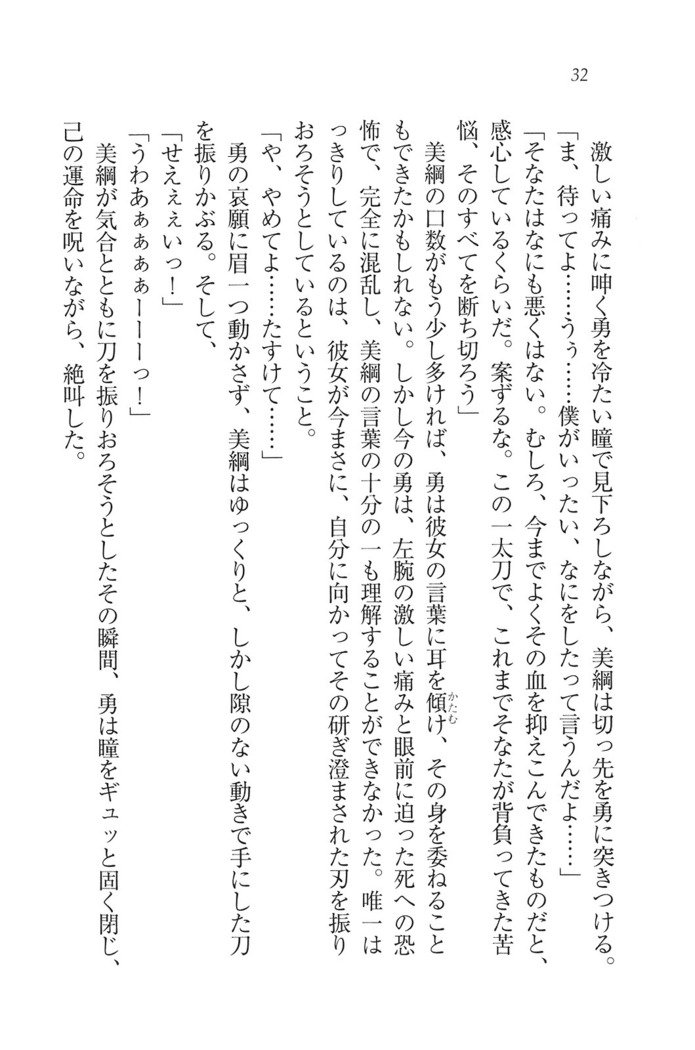 32
激しい痛みに呻く勇を冷たい瞳で見下ろしながら、美綱は切っ先を勇に突きつける。
「ま、待ってよ……うぅ……僕がいったい、なにをしたって言うんだよ……」
「そなたはなにも悪くはない。むしろ、今までよくその血を抑えこんできたものだと、
感心しているくらいだ。案ずるな。この一太刀で、これまでそなたが背負ってきた苦
悩、そのすべてを断ち切ろう」
美綱の口数がもう少し多ければ、勇は彼女の言葉に耳を傾け、その身を委ねること
かたむ
もできたかもしれない。しかし今の勇は、左腕の激しい痛みと眼前に迫った死への恐
怖で、完全に混乱し、美綱の言葉の十分の一も理解することができなかった。唯一は
っきりしているのは、彼女が今まさに、自分に向かってその研ぎ澄まされた刃を振り
おろそうとしているということ。
「や、やめてよ……たすけて……」
勇の哀願に眉一つ動かさず、美綱はゆっくりと、しかし隙のない動きで手にした刀
を振りかぶる。そして、
「せえぇぇいっ！」
「うわあぁぁぁぁーーーっ！」
美綱が気合とともに刀を振りおろそうとしたその瞬間、勇は瞳をギュッと固く閉じ、
己の運命を呪いながら、絶叫した。